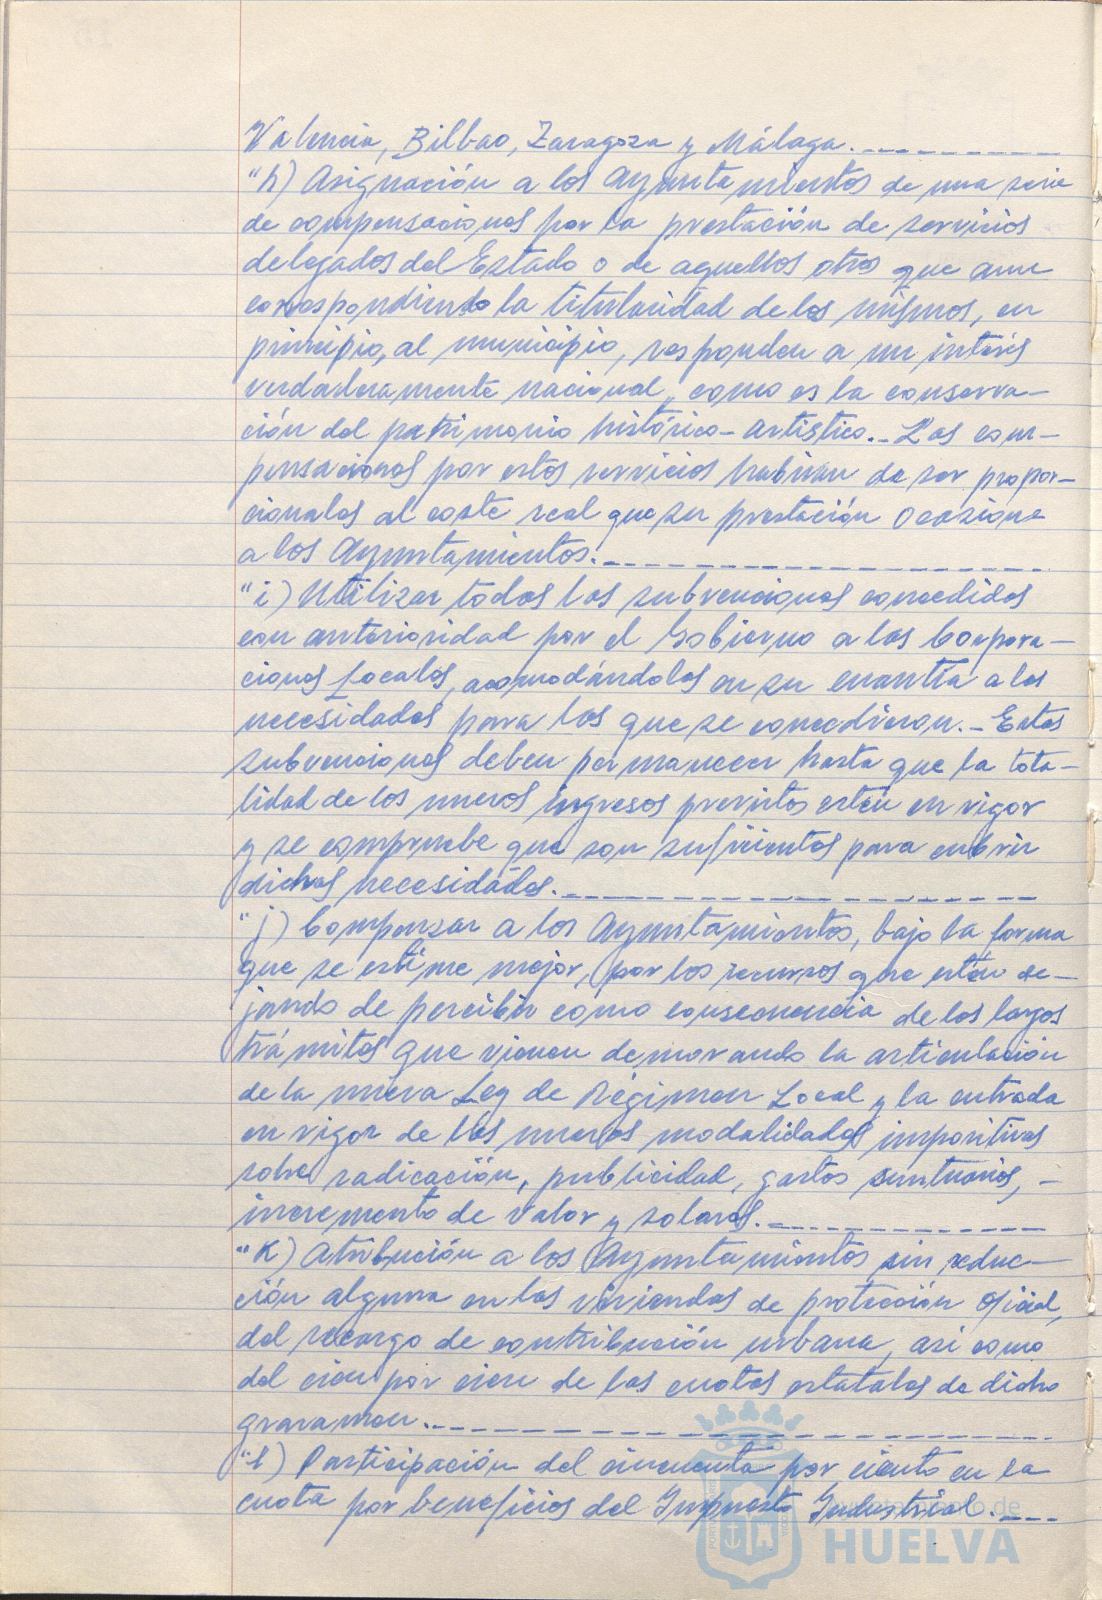 Valencia, Bilbao, Zaragoza y Málaga.----------
"h) Asignación a los Ayuntamientos de una serie
de compensaciones por la prestación de servicios
delegados del Estado o de aquellos otros que aun
correspondiendo la titularidad de los mismos, en
principio, al municipio, responden a un interés
verdaderamente nacional, como es la conserva-
ción del patrimonio histórico-artístico.- Las com-
pensaciones por estos servicios habrían de ser propor-
cionales al coste real que su prestación ocasione
a los Ayuntamientos.--------------------
"i) Utilizar todas las subvenciones concedidas
con anterioridad por el Gobierno a las Corpora-
ciones Locales, acomodándolas en su cuantía a las
necesidades para las que se concedieron.- Estas
subvenciones deben permanecer hasta que la tota-
lidad de los nuevos ingresos previstos estén en vigor
y se compruebe que son suficientes para cubrir
dichas necesidades.--------------------
"j) Compensar a los Ayuntamientos, bajo la forma
que se estime mejor, por los recursos que están de-
jando de percibir como consecuencia de los largos
trámites que vienen demorando la articulación
de la nueva Ley de Régimen Local y la entrada
en vigor de las nuevas modalidades impositivas
sobre radicación, publicidad, gastos suntuarios, -
incremento de valor y solares.--------------
"k) Atribución a los Ayuntamientos sin reduc-
ción alguna en las viviendas de protección oficial,
del recargo de contribución urbana, así como
del cien por cien de las cuotas estatales de dicho
gravamen.------------------------------
"l) Participación del cincuenta por ciento en la
cuota por beneficios del Impuesto Industrial.----
Ayuntamiento de
HUELVA